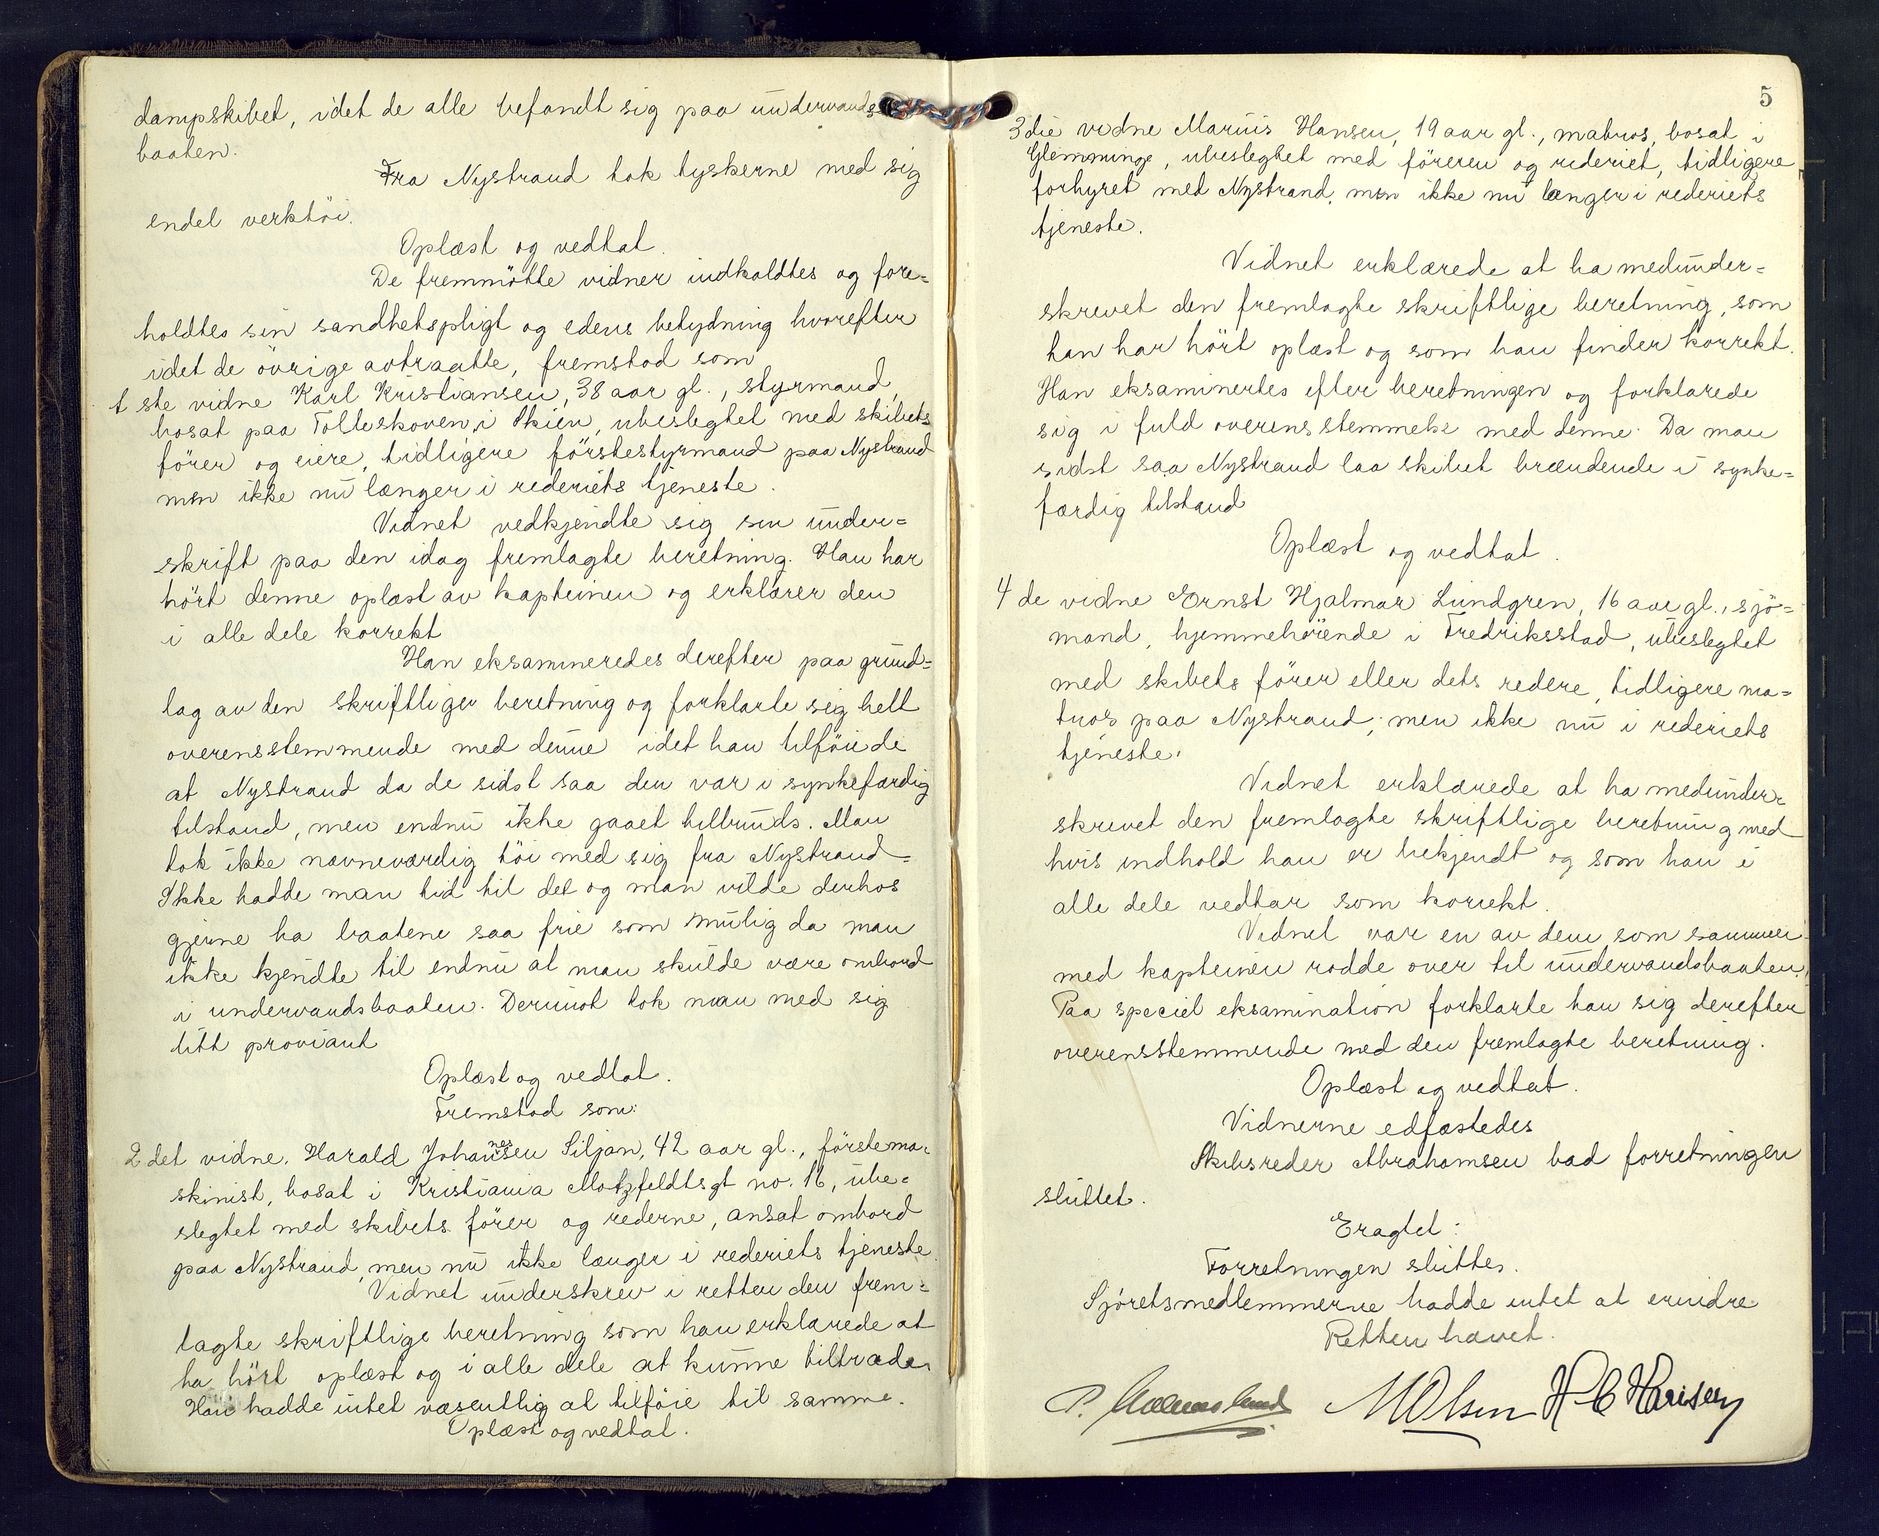 dampskibet, idet de alle befandt sig paa undervands-
baaten.
Fra Nystrand tok tyskerne med sig
endel verktöi.
Oplæst og vedtat.
De fremmötte vidner indkaldtes og fore=
holdtes sin sandhetspligt og edens betydning hvorefter
idet de övrige avtraatte, fremstod som
1ste vidne Karl Kristiansen, 38 aar gl., styrmand,
bosat paa Folleskoven i Skien, ubeslegtet med skibets
förer og eiere, tidligere förstestyrmand paa Nystrand
men ikke nu længer i rederiets tjeneste.
Vidnet vedkjendte sig sin under=
skrift paa den idag fremlagte beretning. Han har
hört denne oplæst av kapteinen og erklærer den
i alle dele korrekt
Han eksamineredes derefter paa grund=
lag av den skriftlige beretning og forklarte sig helt
overensstemmende med denne idet han tilföiede
at Nystrand da de sidst saa den var i synkefærdig
tilstand, men endnu ikke gaaet tilbunds. Man
tok ikke nævneværdig töi med sig fra Nystrand-
Ikke hadde man tid til det og man vilde derhos
gjerne ha baatene saa frie som mulig da man
ikke kjendte til endnu at man skulde være ombord
i undervandsbaaten. Derimot tok man med sig
litt proviant
Oplæst og vedtat.
Fremstod som:
2det vidne. Harald Johannesen Siljan, 42 aar gl., förstema-
skinist, bosat i Kristiania Motzfeldtsgt no. 16, ube=
slegtet med skibets förer og rederne, ansat ombord
paa Nystrand, men nu ikke længer i rederiets tjeneste.
Vidnet underskrev i retten den frem=
lagte skriftlige beretning som han erklærede at
ha hört oplæst og i alle dele at kunne tiltræde.
Han hadde intet væsentlig at tilföie til samme.
Oplæst og vedtat.
5
3die vidne Marius Hansen, 19 aar gl., matros, bosat i
Glemminge, ubeslegtet med föreren og rederiet, tidligere
forhyret med Nystrand, men ikke nu længer i rederiets
tjeneste.
Vidnet erklærede at ha medunder=
skrevet den fremlagte skriftlige beretning, som
han har hört oplæst og som han finder korrekt.
Han eksaminertes efter beretningen og forklarede
sig i fuld overensstemmelse med denne. Da man
sidst saa Nystrand laa skibet brændende i synke=
færdig tilstand
Oplæst og vedtat.
4de vidne Ernst Hjalmar Lundgren, 16 aar gl., sjö=
mand, hjemmehörende i Fredriksstad, ubeslegtet
med skibets förer eller dets redere, tidligere ma=
tros paa Nystrand, men ikke nu i rederiets
tjeneste.
Vidnet erklærede at ha medunder=
skrevet den fremlagte skriftlige beretning med
hvis indhold han er bekjendt og som han i
alle dele vedtar som korrekt.
Vidnet var en av dem som sammen
med kapteinen rodde over til undervandsbaaten.
Paa speciel eksamination forklarte han sig derefter
overensstemmende med den fremlagte beretning.
Oplæst og vedtat.
Vidnerne edfæstedes
Skibsreder Abrahamsen bad forretningen
sluttet.
Eragtet:
Forretningen sluttes.
Sjöretsmedlemmerne hadde intet at erindre
Retten hævet.
P. MOlsen H C Hansen